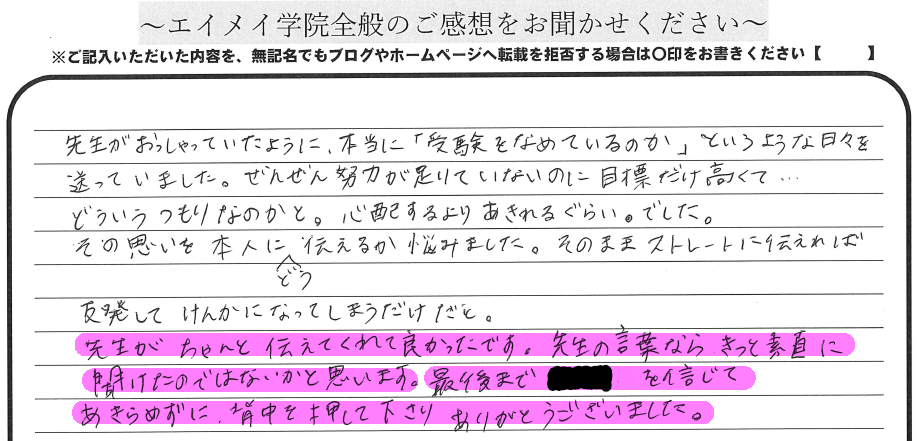 ～エイメイ学院全般のご感想をお聞かせください～
※ご記入いただいた内容を、無記名でもブログやホームページへ転載を拒否する場合は〇印をお書きください【　　】
先生がおっしゃっていたように、本当に「受験をなめているのか」というような日々を
送っていました。ぜんぜん努力が足りていないのに目標だけ高くて…
どういうつもりなのかと。心配するよりあきれるぐらい。でした。
その思いを本人にどう伝えるか悩みました。そのままストレートに伝えれば
反発してけんかになってしまうだけだと。
先生がちゃんと伝えてくれて良かったです。先生の言葉ならきっと素直に
聞けたのではないかと思います。最後まで　を信じて
あきらめずに、背中を押して下さりありがとうございました。